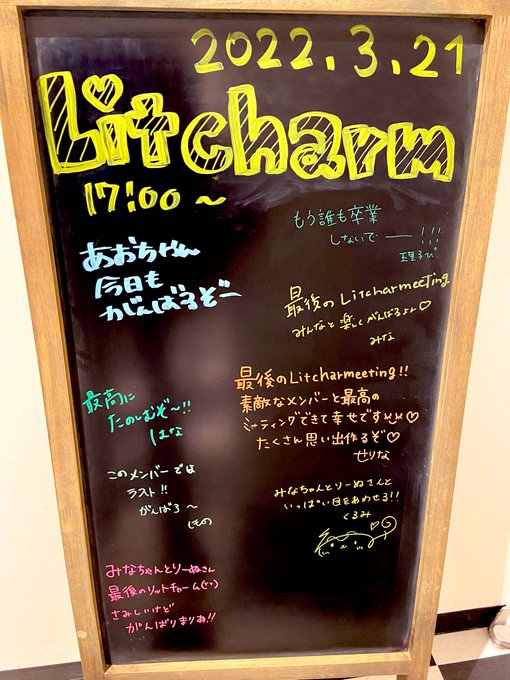 2022.3.21
Litcharm
17:00～
もう誰も卒業
しないで ―― !!!
理子ぴ
あおちゃん
今日も
がんばるぞー
最後のLitcharmeeting
みんなと楽しくがんばるよん♡
みな
最高に
たのしむぞ～!!
はな
最後のLitcharmeeting!!
素敵なメンバーと最高の
ミーティングできて幸せです
たくさん思い出作るぞ♡
せりな
このメンバーでは
ラスト!!
がんばろ～
みなちゃんとりーぬさんと
いっぱい目をあわせる!!
くるみ
みなちゃんとりーぬさん
最後のリットチャーム
さみしいけど
がんばりまりあ!!